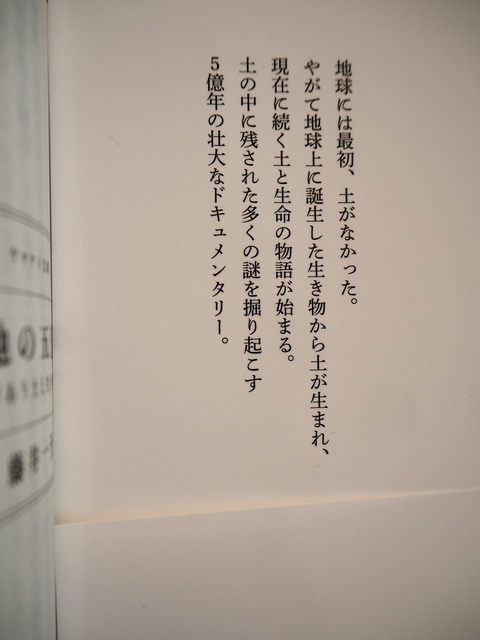 地球には最初、土がなかった。
やがて地球上に誕生した生き物から土が生まれ、
現在に続く土と生命の物語が始まる。
土の中に残された多くの謎を掘り起こす
5億年の壮大なドキュメンタリー。
の五
藤井一